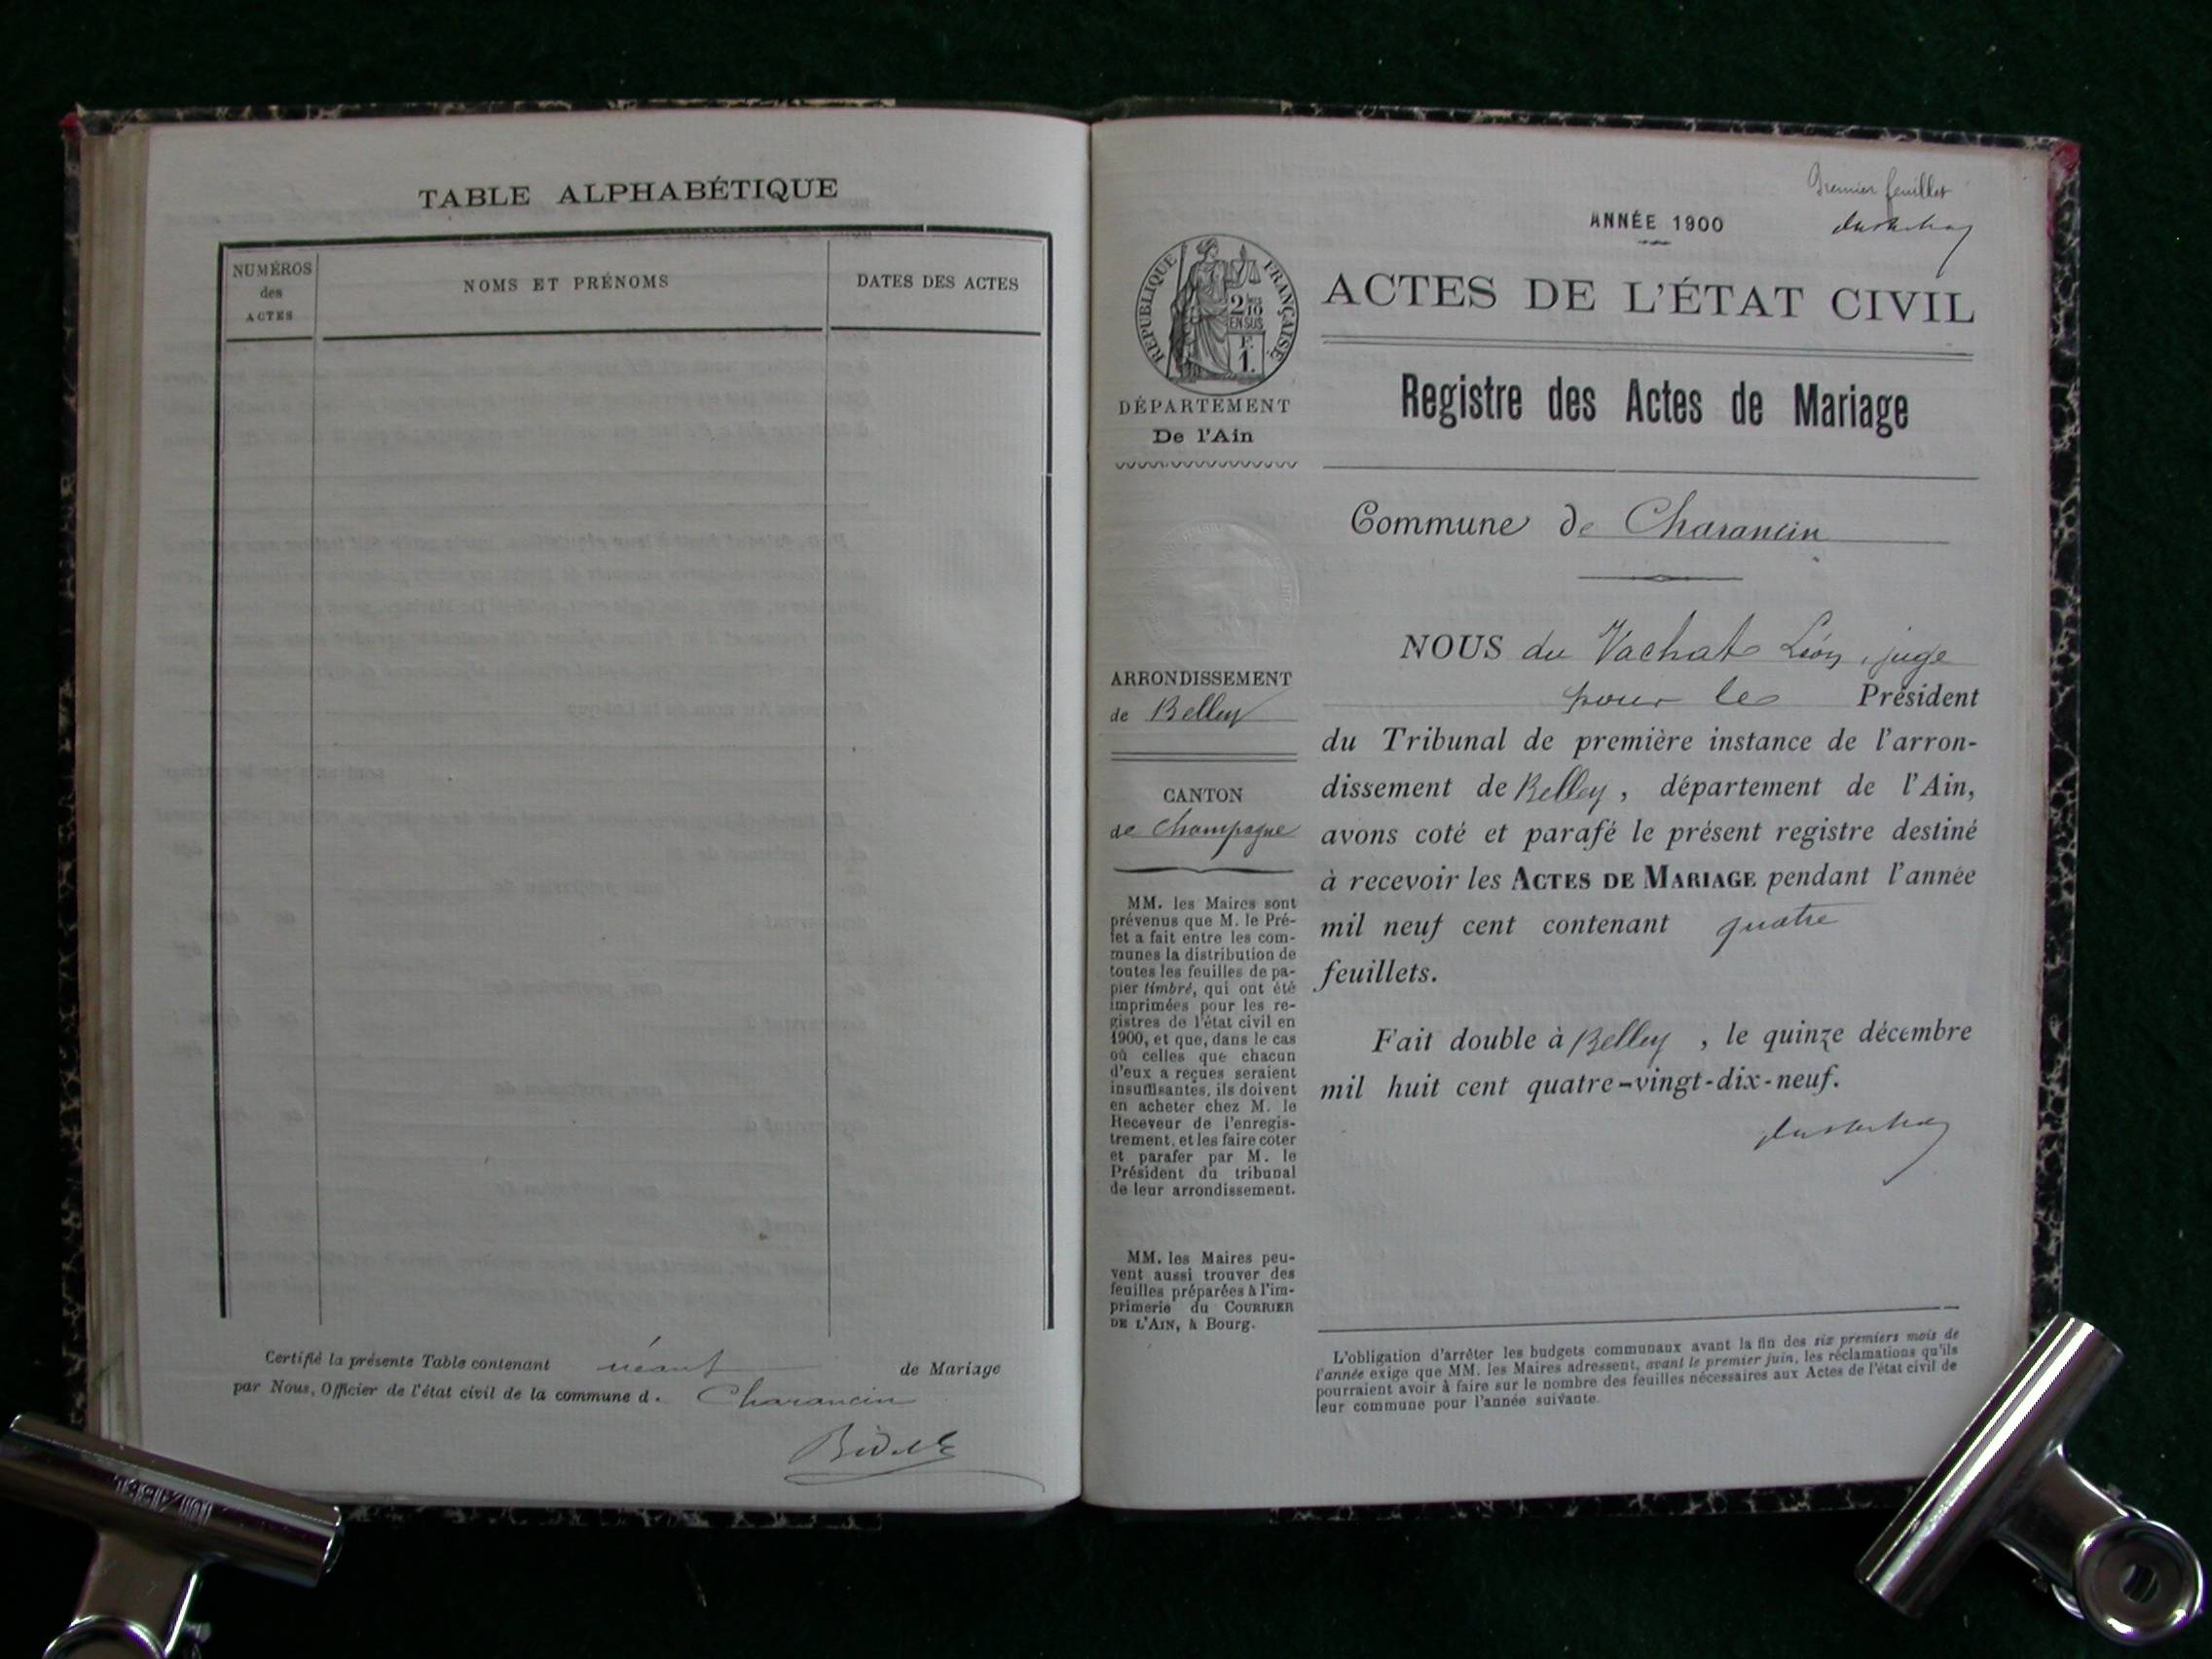 TABLE ALPHABÉTIQUE
NUMÉROS
des
ACTES
NOMS ET PRÉNOMS
DATES DES ACTES
Certifié la présente Table contenant néant de Mariage
par Nous, Officier de l'état civil de la commune d. Charancin
Premier feuillet
ANNÉE 1900
RÉPUBLIQUE FRANÇAISE
2/10
EN SUS
1.
ACTES DE L'ÉTAT CIVIL
Registre des Actes de Mariage
DÉPARTEMENT
De l'Ain
Commune de Charancin
ARRONDISSEMENT
de Belley
CANTON
de Champagne
MM. les Maires sont
prévenus que M. le Pré-
fet a fait entre les com-
munes la distribution de
toutes les feuilles de pa-
pier timbré, qui ont été
imprimées pour les re-
gistres de l'état civil en
1900, et que, dans le cas
où celles que chacun
d'eux a reçues seraient
insuffisantes, ils doivent
en acheter chez M. le
Receveur de l'enregis-
trement, et les faire coter
et parafer par M. le
Président du tribunal
de leur arrondissement.
MM. les Maires peu-
vent aussi trouver des
feuilles préparées à l'im-
primerie du COURRIER
DE L'AIN, à Bourg.
NOUS du Vachat Léon, juge
pour le Président
du Tribunal de première instance de l'arron-
dissement de Belley, département de l'Ain,
avons coté et parafé le présent registre destiné
à recevoir les ACTES DE MARIAGE pendant l'année
mil neuf cent contenant quatre
feuillets.
Fait double à Belley, le quinze décembre
mil huit cent quatre-vingt-dix-neuf.
L'obligation d'arrêter les budgets communaux avant la fin des six premiers mois de
l'année exige que MM. les Maires adressent, avant le premier juin, les réclamations qu'ils
pourraient avoir à faire sur le nombre des feuilles nécessaires aux Actes de l'état civil de
leur commune pour l'année suivante.